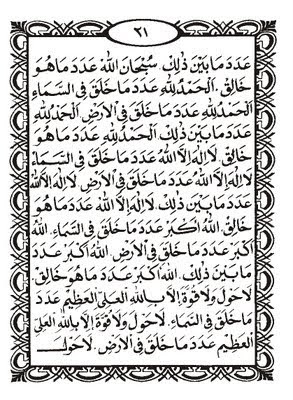 ٢١
عَدَدَ مَا بَيْنَ ذٰلِكَ. سُبْحَانَ اللّٰهِ عَدَدَ مَا هُوَ
خَالِقٌ. اَلْحَمْدُ لِلّٰهِ عَدَدَ مَا خَلَقَ فِى السَّمَاءِ
اَلْحَمْدُ لِلّٰهِ عَدَدَ مَا خَلَقَ فِى الْاَرْضِ. اَلْحَمْدُ لِلّٰهِ
عَدَدَ مَا بَيْنَ ذٰلِكَ. اَلْحَمْدُ لِلّٰهِ عَدَدَ مَا هُوَ
خَالِقٌ. لَا اِلٰهَ اِلَّا اللّٰهُ عَدَدَ مَا خَلَقَ فِى السَّمَاءِ
لَا اِلٰهَ اِلَّا اللّٰهُ عَدَدَ مَا خَلَقَ فِى الْاَرْضِ. لَا اِلٰهَ اِلَّا اللّٰهُ
عَدَدَ مَا بَيْنَ ذٰلِكَ. لَا اِلٰهَ اِلَّا اللّٰهُ عَدَدَ مَا هُوَ
خَالِقٌ. اَللّٰهُ اَكْبَرُ عَدَدَ مَا خَلَقَ فِى السَّمَاءِ. اَللّٰهُ
اَكْبَرُ عَدَدَ مَا خَلَقَ فِى الْاَرْضِ. اَللّٰهُ اَكْبَرُ عَدَدَ
مَا بَيْنَ ذٰلِكَ. اَللّٰهُ اَكْبَرُ عَدَدَ مَا هُوَ خَالِقٌ.
لَاحَوْلَ وَلَاقُوَّةَ اِلَّا بِاللّٰهِ الْعَلِىِّ الْعَظِيْمِ عَدَدَ
مَا خَلَقَ فِى السَّمَاءِ. لَاحَوْلَ وَلَاقُوَّةَ اِلَّا بِاللّٰهِ الْعَلِىِّ
الْعَظِيْمِ عَدَدَ مَا خَلَقَ فِى الْاَرْضِ. لَاحَوْلَ